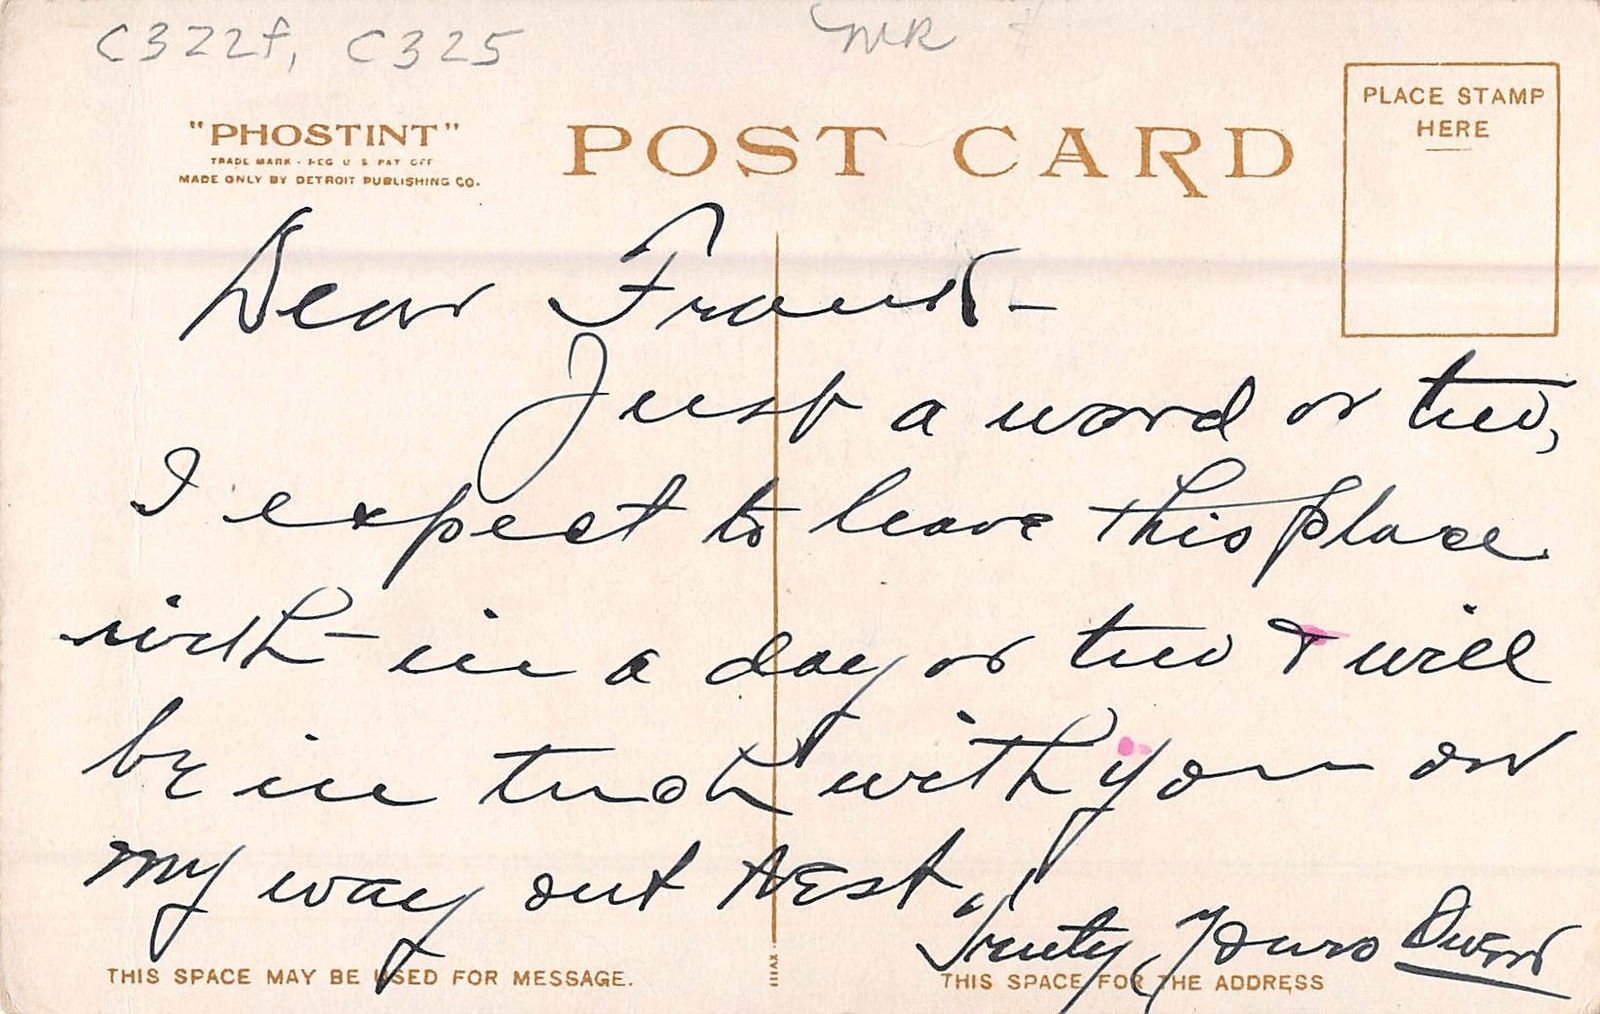 C322f, C325
MR
PLACE STAMP
HERE
"PHOSTINT"
POST CARD
TRADE MARK - REG U S PAT OFF
MADE ONLY BY DETROIT PUBLISHING CO.
Dear Frank -
Just a word or two,
I expect to leave this place
with-in a day or two & will
be in tuch with you on
my way out West.
Truly Yours Owen
THIS SPACE MAY BE USED FOR MESSAGE.
THIS SPACE FOR THE ADDRESS